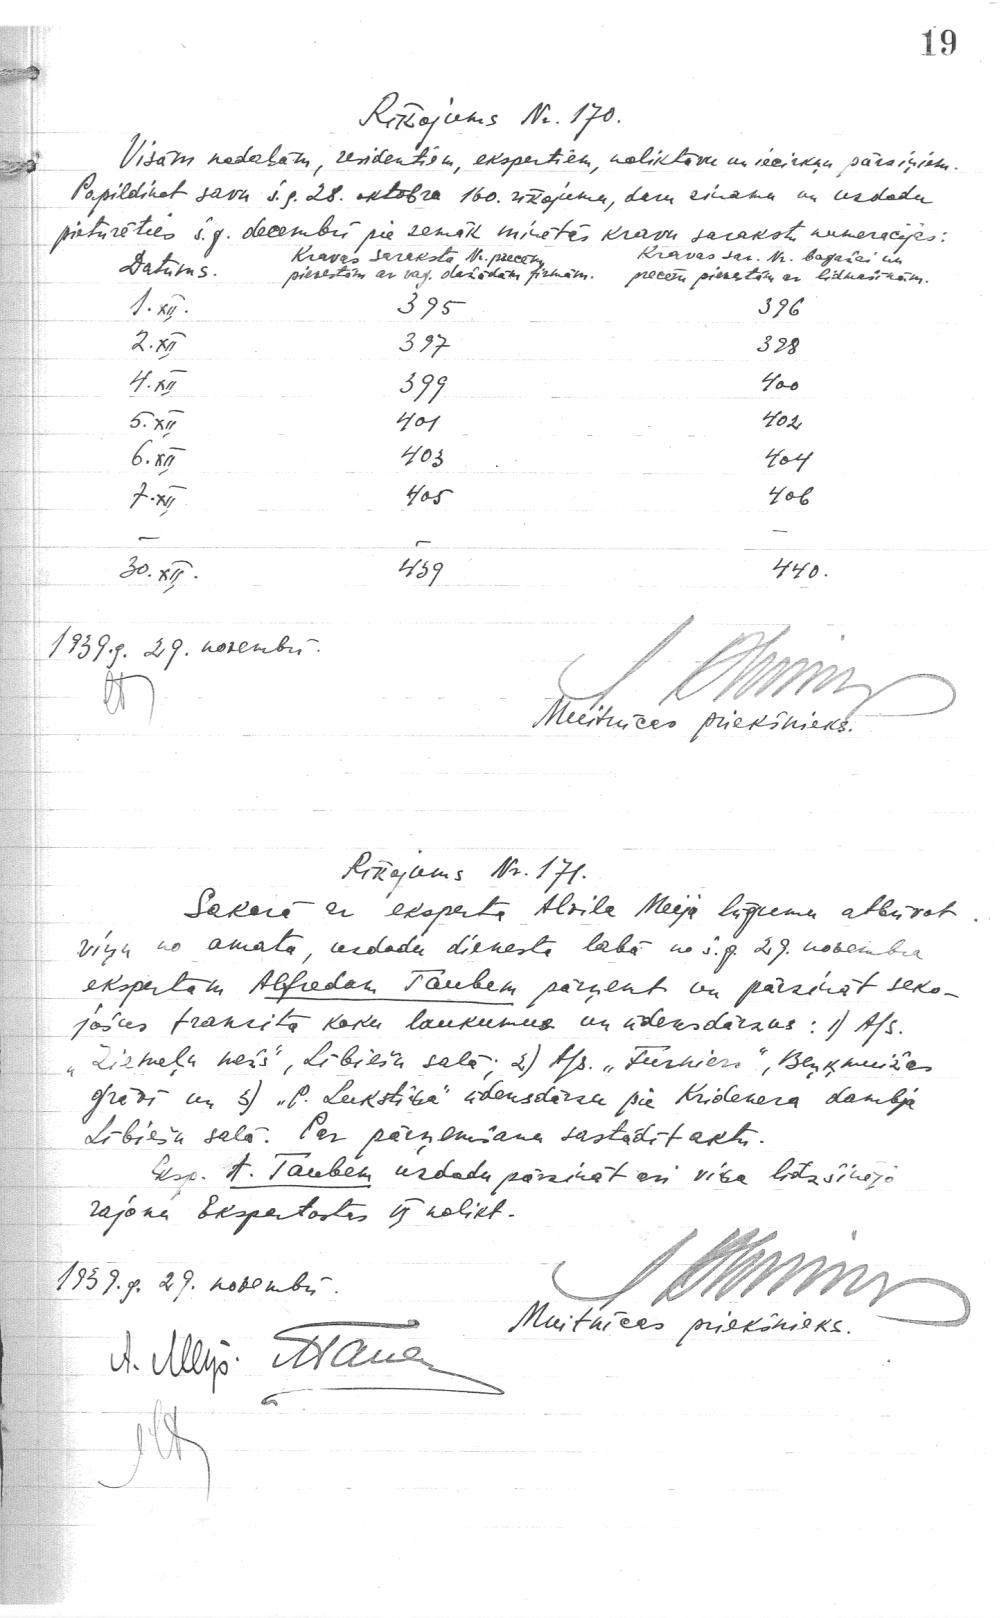 19
Rīkojums Nr. 170.
Visām nodaļām, residentiem, ekspertiem, noliktavu un iecirkņu pārziņiem.
Papildinot savu š.g. 28. oktobra 160. rīkojumu, daru zinamu un uzdodu
pieturēties š.g. decembrī pie zemāk minētās kravu sarakstu numerācijas:
Datums. Kravas saraksta Nr. precēm, pievestām ar vag. dažādām firmām. Kravas sar. Nr. bagažai un precēm pievestām ar lidmašīnām.
1.XII. 395 396
2.XII 397 398
4.XII 399 400
5.XII 401 402
6.XII 403 404
7.XII 405 406
– – –
30.XII. 439 440.
1939.g. 29. novembrī.
Muitnīcas priekšnieks.
Rīkojums Nr. 171.
Sakarā ar eksperta Alvila Meija lūgumu atbrīvot
viņu no amata, uzdodu dienesta labā no š.g. 29. novembra
ekspertam Alfredam Taubem pārņemt un pārzināt seko-
jošus transita koku laukumus un ūdensdārzus: 1) A/s.
„Ziemeļu mežs", Lībiešu salā; 2) A/s. „Furniers", Beņķmuižas
grāvī un 3) „P. Lukstiņa" ūdensdārzu pie Kridenera dambja
Lībiešu salā. Par pārņemšanu sastādīt aktu.
Eksp. A. Taubem uzdodu pārzināt arī viņa līdzšinējo
rajonu Ekspertostas VI nolikt.
1939.g. 29. novembrī.
Muitnīcas priekšnieks.
A. Meijs.